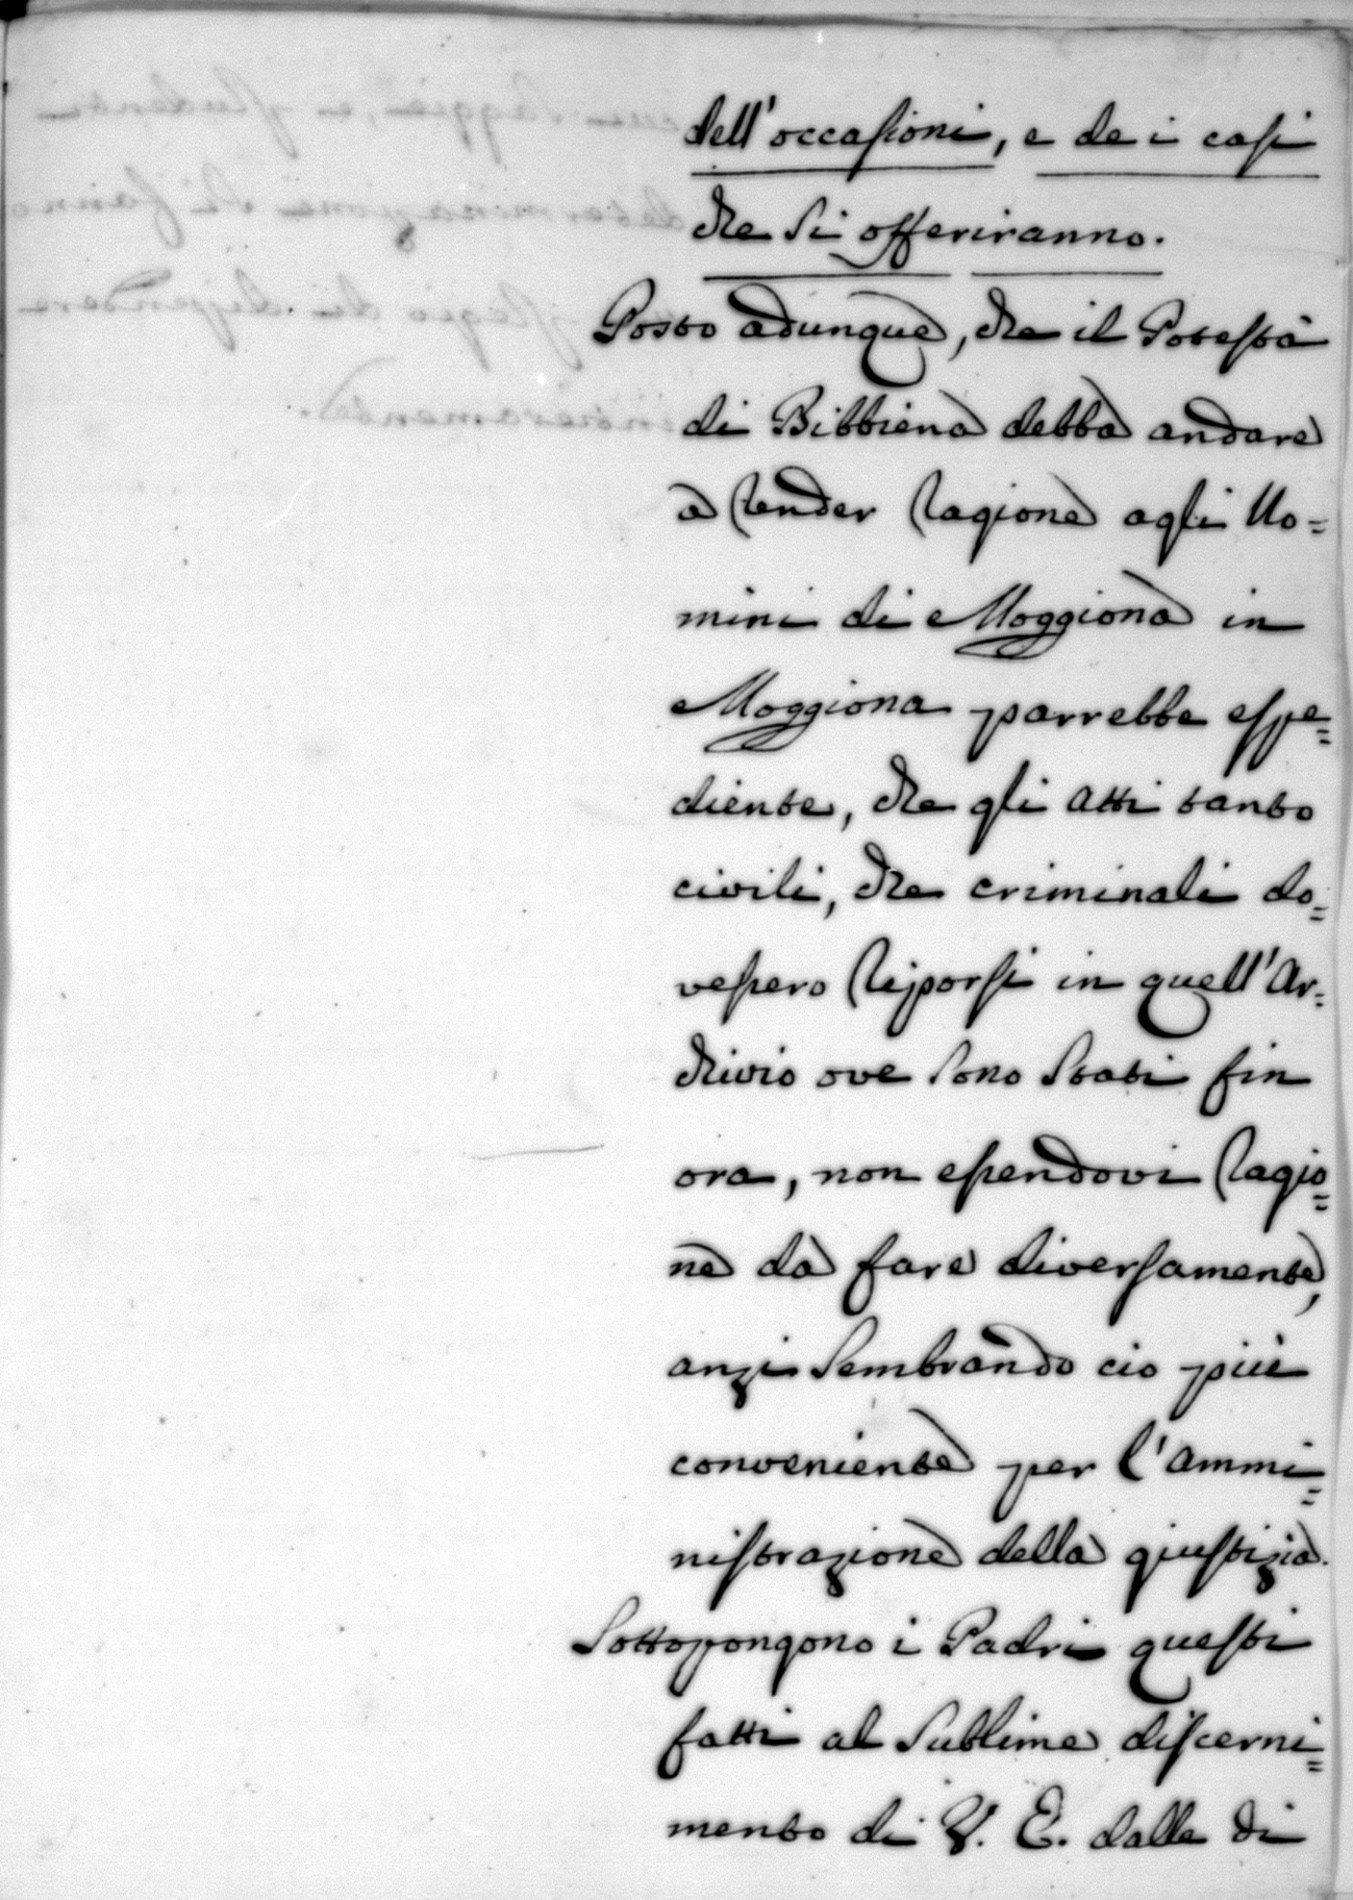 dell'occasioni, e de i casi
che si offeriranno.
Posto adunque, che il Potestà
di Bibbiena debba andare
a render ragione agli Uo=
mini di Moggiona in
Moggiona parrebbe espe=
diente, che gli atti tanto
civili, che criminali do=
vessero riporsi in quell'Ar=
chivio ove sono stati fin
ora, non essendovi ragio=
ne da fare diversamente,
anzi sembrando cio più
conveniente per l'ammi=
nistrazione della giustizia.
Sottopongono i Padri questi
fatti al sublime discerni=
mento di V. E. dalle di